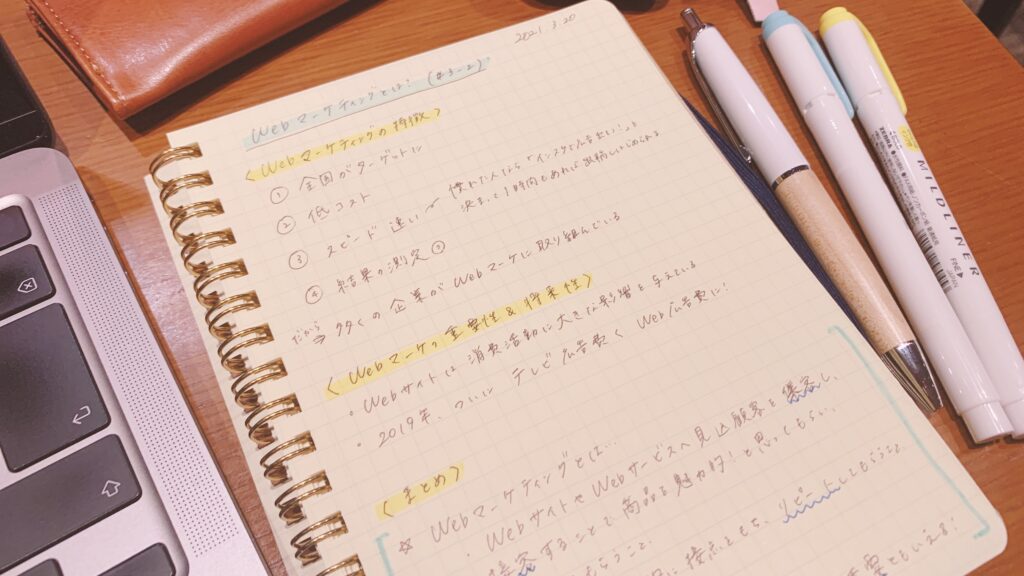 2021.3.20
Webマーケティングとは? (#3-2)
〈Webマーケティングの特徴〉
① 全国がターゲットに
② 低コスト
③ スピード速い
慣れた人なら「インスタで広告出したい!」と
決まって1時間もあれば出稿しはじめられる
④ 結果の測定
だから
⇒ 多くの企業がWebマーケに取り組んでいる
〈Webマーケの重要性&将来性〉
・Webサイトは消費活動に大きな影響を与えている
・2019年、ついに テレビ広告費<Web広告費に!
〈まとめ〉
☆ Webマーケティングとは…
・WebサイトやWebサービスへ見込顧客を集客し、
接客することで商品を魅力的!と思ってもらい、
もらうこと
接点をもち、リピートしてもらうこと
重要ともいえる!
MILDLINER